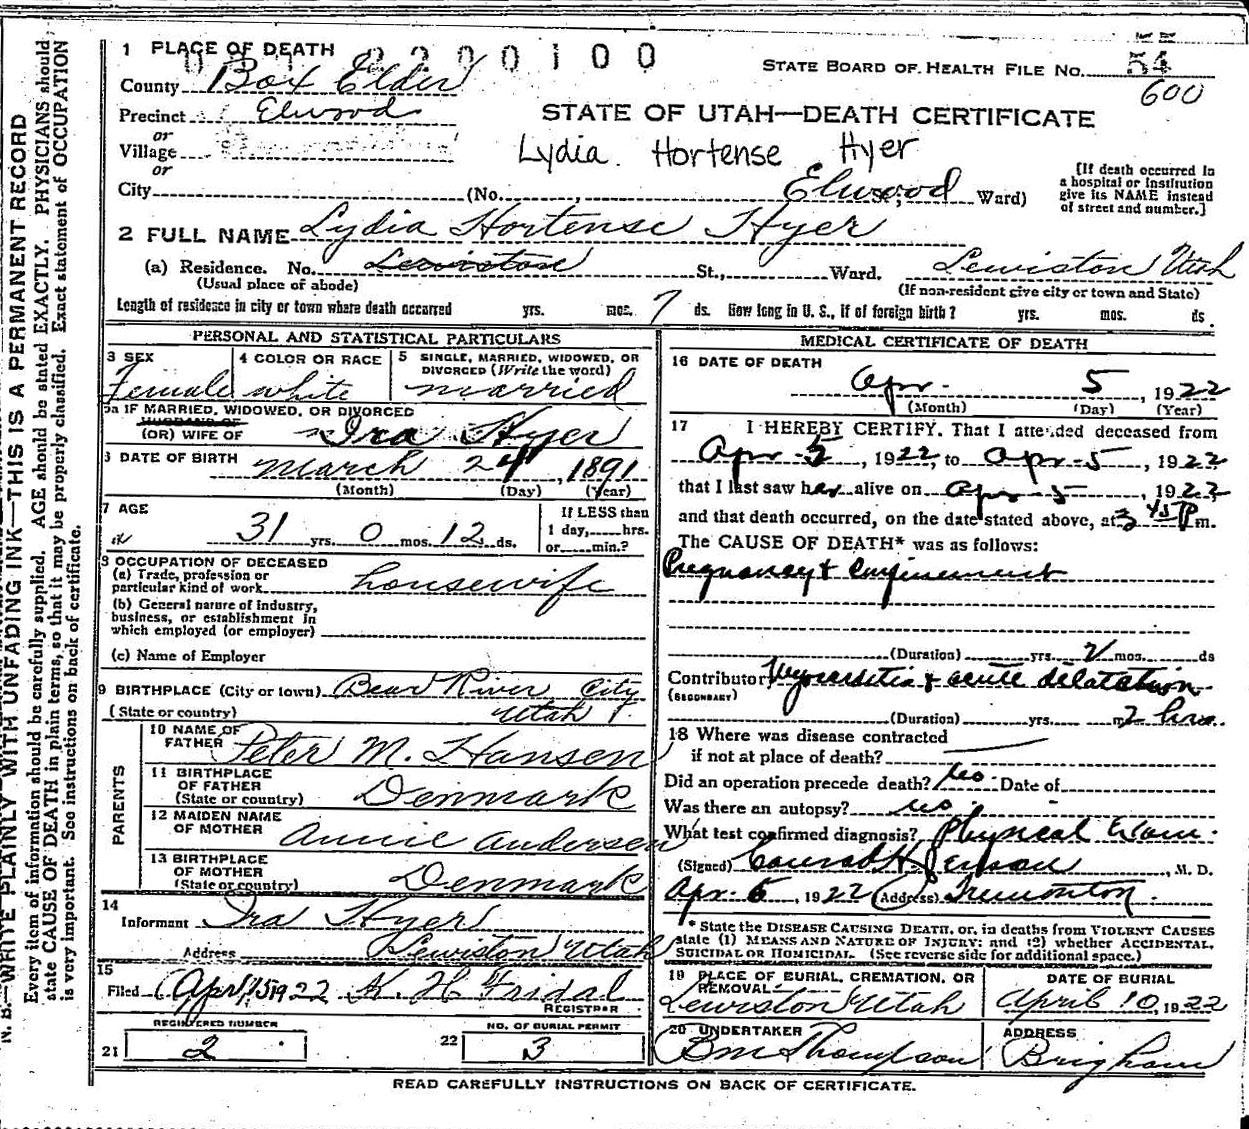 1 PLACE OF DEATH 2200100
STATE BOARD OF HEALTH FILE NO. 54
600
County Box Elder
Precinct Elwood
STATE OF UTAH—DEATH CERTIFICATE
or
Village
Lydia Hortense Hyer
or
City (No. , Elwood Ward)
[If death occurred in a hospital or institution give its NAME instead of street and number.]
2 FULL NAME Lydia Hortense Hyer
(a) Residence. No. Lewiston St., Ward. Lewiston Utah
(Usual place of abode) (If non-resident give city or town and State)
Length of residence in city or town where death occurred yrs. mos. 7 ds. How long in U. S., if of foreign birth? yrs. mos. ds.
PERSONAL AND STATISTICAL PARTICULARS
3 SEX
Female
4 COLOR OR RACE
white
5 SINGLE, MARRIED, WIDOWED, OR DIVORCED (Write the word)
married
5a IF MARRIED, WIDOWED, OR DIVORCED
HUSBAND OF
(OR) WIFE OF Ira Hyer
6 DATE OF BIRTH March 24, 1891
(Month) (Day) (Year)
7 AGE
31 yrs. 0 mos. 12 ds.
If LESS than
1 day, hrs.
or min.?
8 OCCUPATION OF DECEASED
(a) Trade, profession or
particular kind of work housewife
(b) General nature of industry,
business, or establishment in
which employed (or employer)
(c) Name of Employer
9 BIRTHPLACE (City or town) Bear River City
(State or country) Utah
PARENTS
10 NAME OF FATHER Peter M. Hansen
11 BIRTHPLACE OF FATHER (State or country) Denmark
12 MAIDEN NAME OF MOTHER Annie Andersen
13 BIRTHPLACE OF MOTHER (State or country) Denmark
14
Informant Ira Hyer
Address Lewiston Utah
15
Filed Apr/15 1922 K. H. Fridal
REGISTRAR
REGISTERED NUMBER
21 2
NO. OF BURIAL PERMIT
22 3
MEDICAL CERTIFICATE OF DEATH
16 DATE OF DEATH
Apr. 5, 1922
(Month) (Day) (Year)
17 I HEREBY CERTIFY, That I attended deceased from
Apr - 5, 1922, to Apr - 5, 1922
that I last saw her alive on Apr - 5, 1922
and that death occurred, on the date stated above, at 3 45 P m.
The CAUSE OF DEATH* was as follows:
Pregnancy & Confinement
(Duration) yrs. mos. ds
Contributory Myocarditis & acute dilatation
(SECONDARY)
(Duration) yrs. 2 hrs.
18 Where was disease contracted
if not at place of death?
Did an operation precede death? No Date of
Was there an autopsy? no
What test confirmed diagnosis? Physical Exam.
(Signed) Conrad H Jenson, M. D.
Apr - 6, 1922 (Address) Tremonton.
* State the DISEASE CAUSING DEATH, or, in deaths from VIOLENT CAUSES
state (1) MEANS AND NATURE OF INJURY; and (2) whether ACCIDENTAL,
SUICIDAL OR HOMICIDAL. (See reverse side for additional space.)
19 PLACE OF BURIAL, CREMATION, OR REMOVAL
Lewiston Utah
DATE OF BURIAL
April 10, 1922
20 UNDERTAKER
BM Thompson
ADDRESS
Brigham
READ CAREFULLY INSTRUCTIONS ON BACK OF CERTIFICATE.
N. B.—WRITE PLAINLY WITH UNFADING INK—THIS IS A PERMANENT RECORD
Every item of information should be carefully supplied. AGE should be stated EXACTLY. PHYSICIANS should
state CAUSE OF DEATH in plain terms, so that it may be properly classified. Exact statement of OCCUPATION
is very important. See instructions on back of certificate.